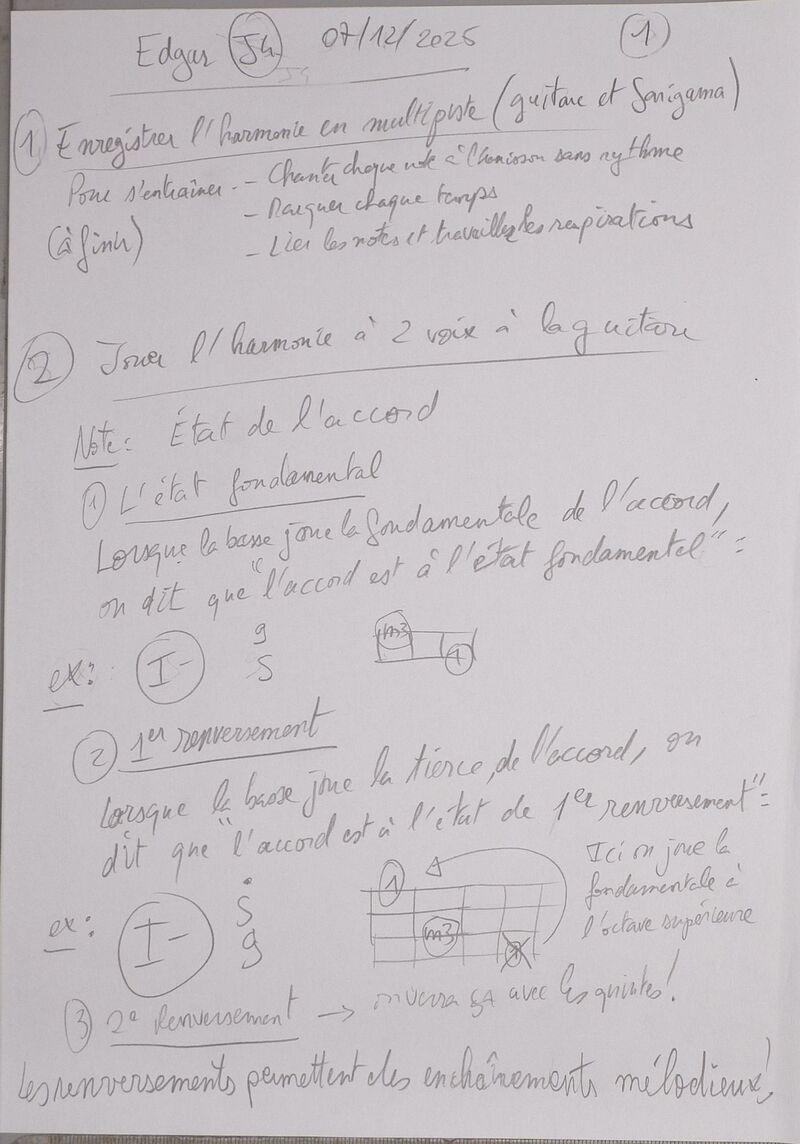 Edgar J4 07/12/2025 1
1 Enregistrer l'harmonie en multipiste (guitare et Sarigama)
Pour s'entraîner - Chanter chaque note à l'unisson sans rythme
- Marquer chaque temps
(à finir) - Lier les notes et travailler les respirations
2 Jouer l'harmonie à 2 voix à la guitare
Note: État de l'accord
1 L'état fondamental
Lorsque la basse joue la fondamentale de l'accord,
on dit que "l'accord est à l'état fondamental" =
ex: I- g m3
S 1
2 1er renversement
Lorsque la basse joue la tierce, de l'accord, on
dit que "l'accord est à l'état de 1er renversement" =
Ici on joue la
fondamentale à
l'octave supérieure
1
ex: I- Ṡ
g m3 1
3 2e Renversement → on verra ça avec les quintes!
Les renversements permettent des enchaînements mélodieux!